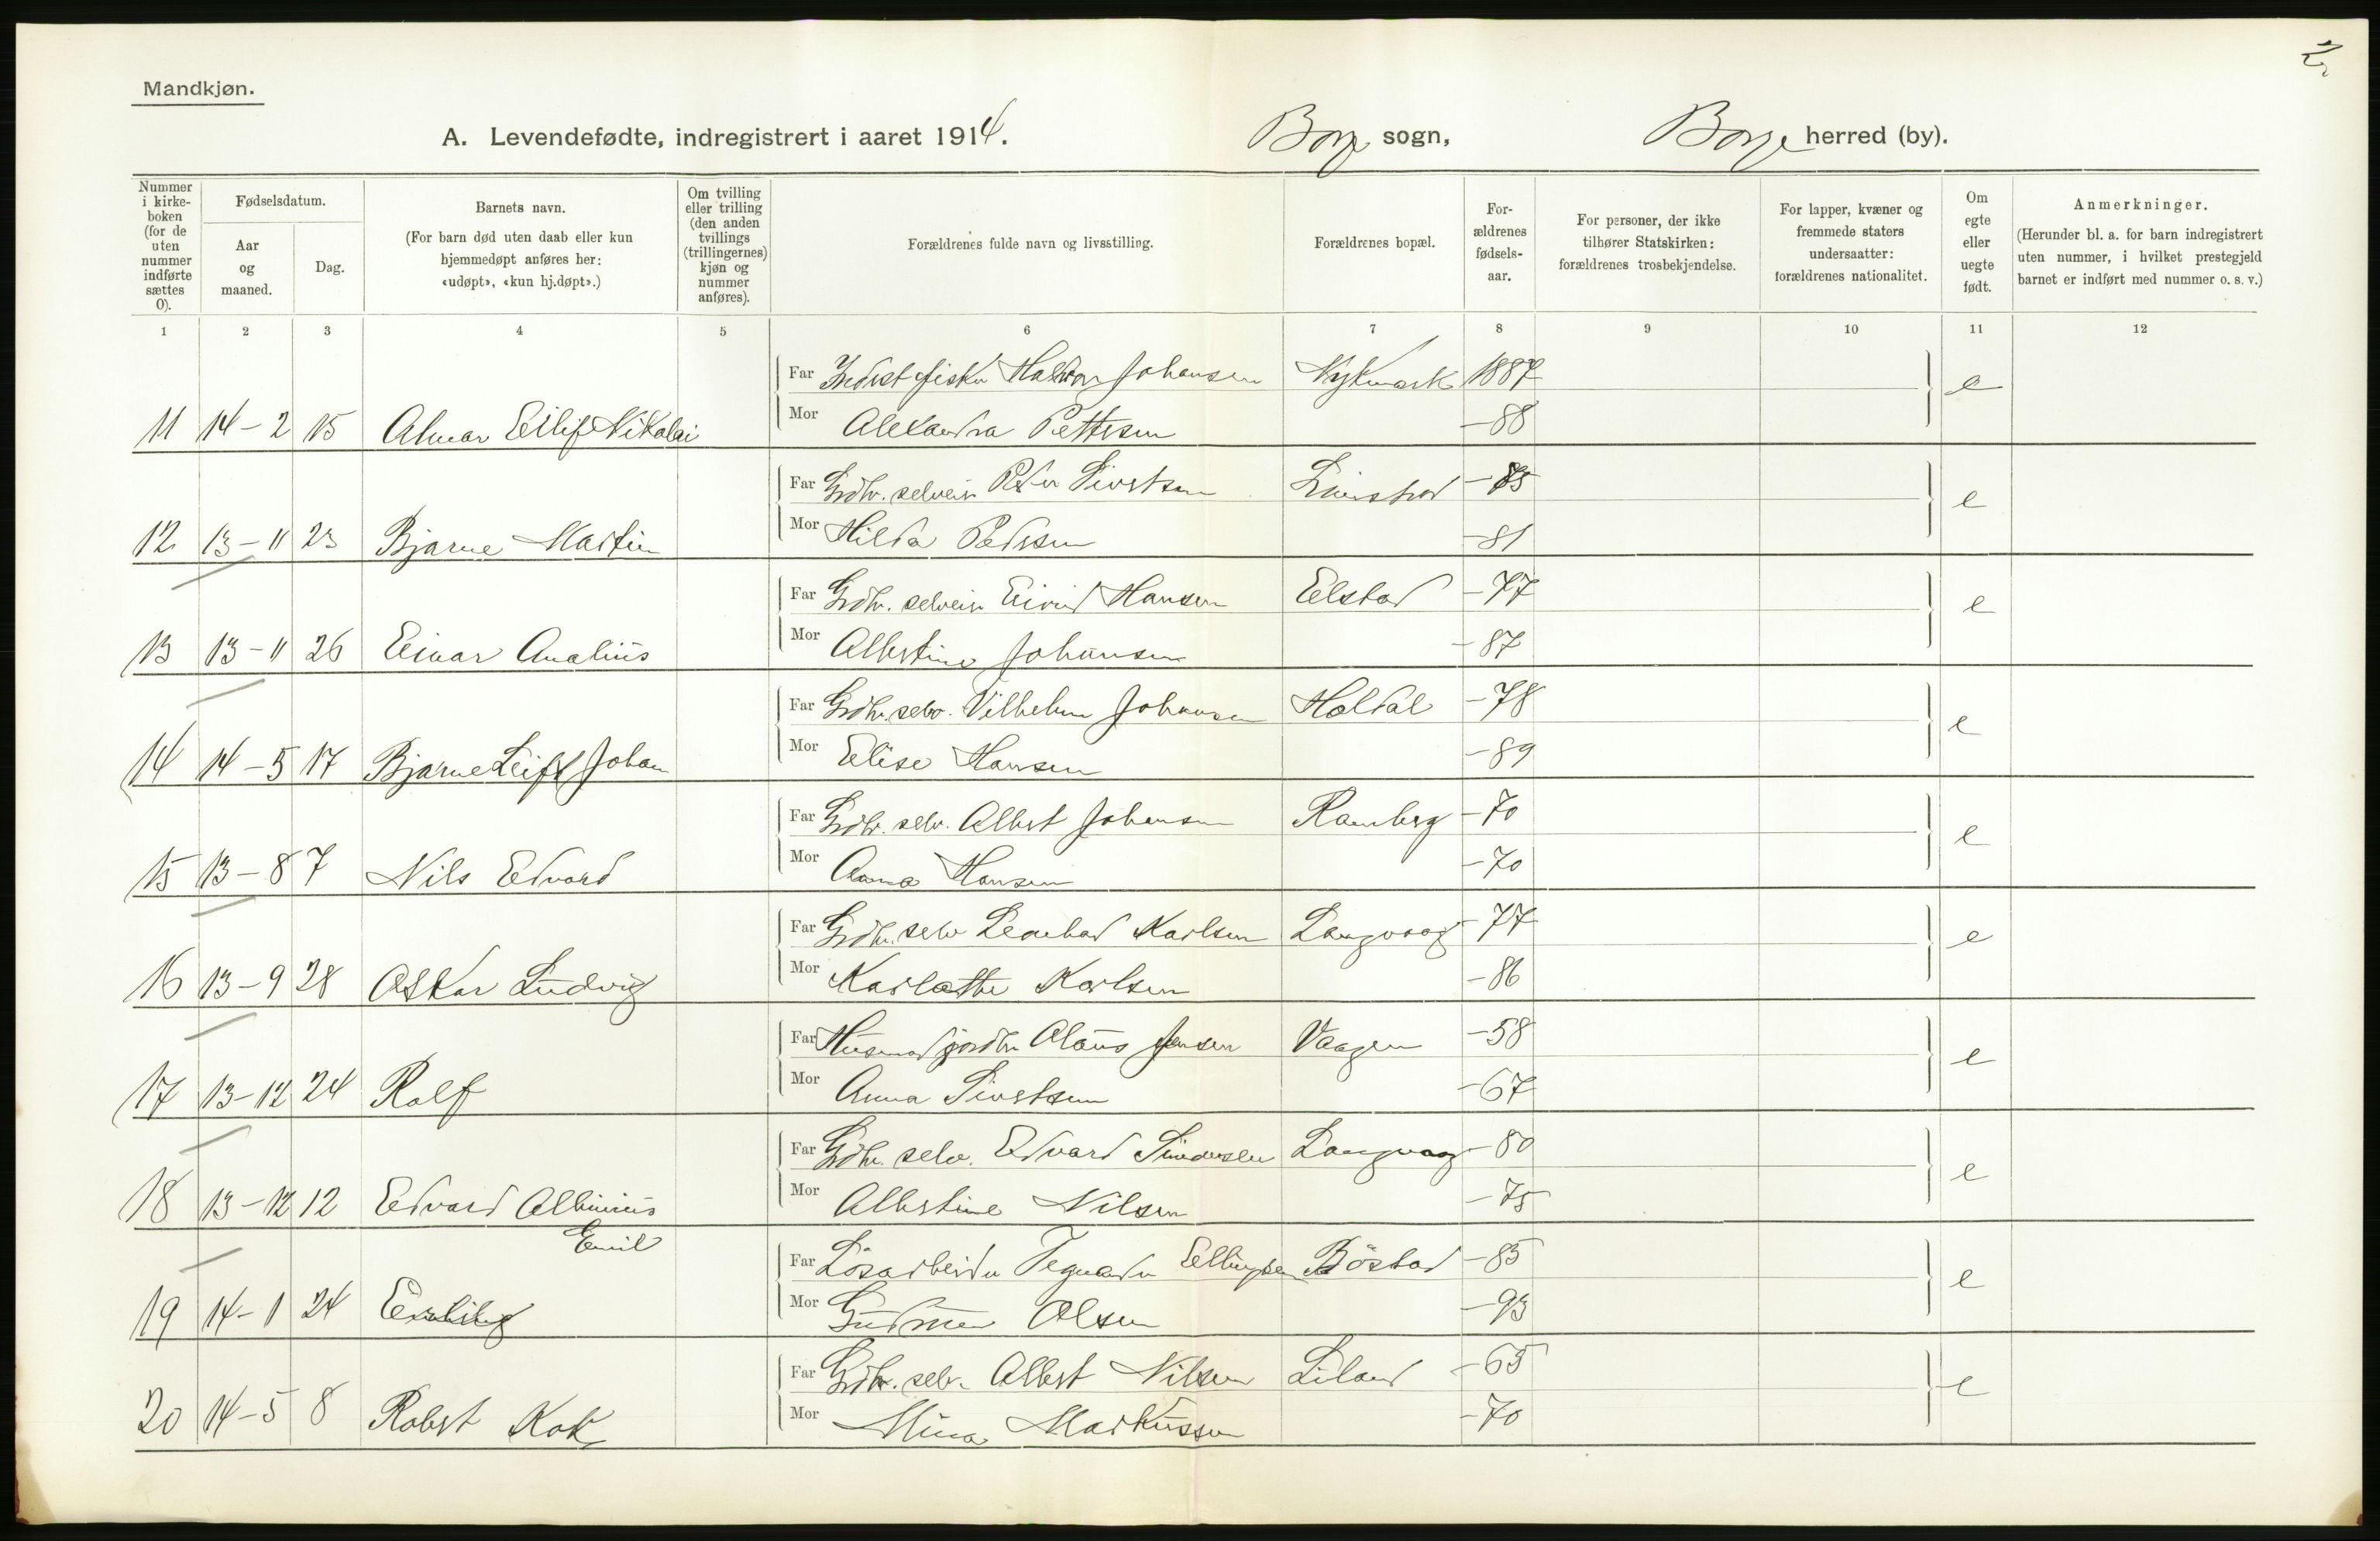 2
Mandkjøn.
A. Levendefødte, indregistrert i aaret 1914. Borge sogn, Borge herred (by).
Nummer i kirke-boken (for de uten nummer indførte sættes 0).
Fødselsdatum.
Aar og maaned.
Dag.
Barnets navn.
(For barn død uten daab eller kun hjemmedøpt anføres her: «udøpt», «kun hj.døpt».)
Om tvilling eller trilling (den anden tvillings (trillingernes) kjøn og nummer anføres).
Forældrenes fulde navn og livsstilling.
Forældrenes bopæl.
For-ældrenes fødsels-aar.
For personer, der ikke tilhører Statskirken: forældrenes trosbekjendelse.
For lapper, kvæner og fremmede staters undersaatter: forældrenes nationalitet.
Om egte eller uegte født.
Anmerkninger.
(Herunder bl. a. for barn indregistrert uten nummer, i hvilket prestegjeld barnet er indført med nummer o. s. v.)
1 2 3 4 5 6 7 8 9 10 11 12
Far Inderst fisker Johansen 1887 e
11 14-2 15 Almar Eilif Nikolai Mor Alexandra Pettersen -88
Far Grdbr. selveier Peder Sivertsen -85 e
12 13-11 23 Bjarne Martin Mor Hilda Pedersen -81
Far Grdbr. selveier Eivind Hansen Eelstad -77 e
13 13-11 26 Einar Analius Mor Albertine Johansen -87
Far Grdbr. selv. Vilhelm Johansen Haldal -78 e
14 14-5 17 Bjarne Leif Johan Mor Elise Hansen -89
Far Grdbr. selv. Albert Johansen Ramberg -70 e
15 13-8 7 Nils Edvard Mor Anna Hansen -70
Far Grdbr. selv Leonhard Karlsen Langvaag -77 e
16 13-9 28 Oskar Ludvig Mor Karlothe Karlsen -86
Far Husmand jordbr Olaus Jensen Vaagen -58 e
17 13-12 24 Rolf Mor Anna Sivertsen -67
Far Grdbr. selv. Edvard Simonsen Langvaag -80 e
18 13-12 12 Edvard Albinius Mor Albertine Nilsen -75
Emil
Far Løsarbeider Tegnander Ellingsen Böstad -85 e
19 14-1 24 Erling Mor Olsen -93
Far Grdbr. selv. Albert Nilsen Liland -65 e
20 14-5 8 Robert Kok Mor Mina Markussen -70